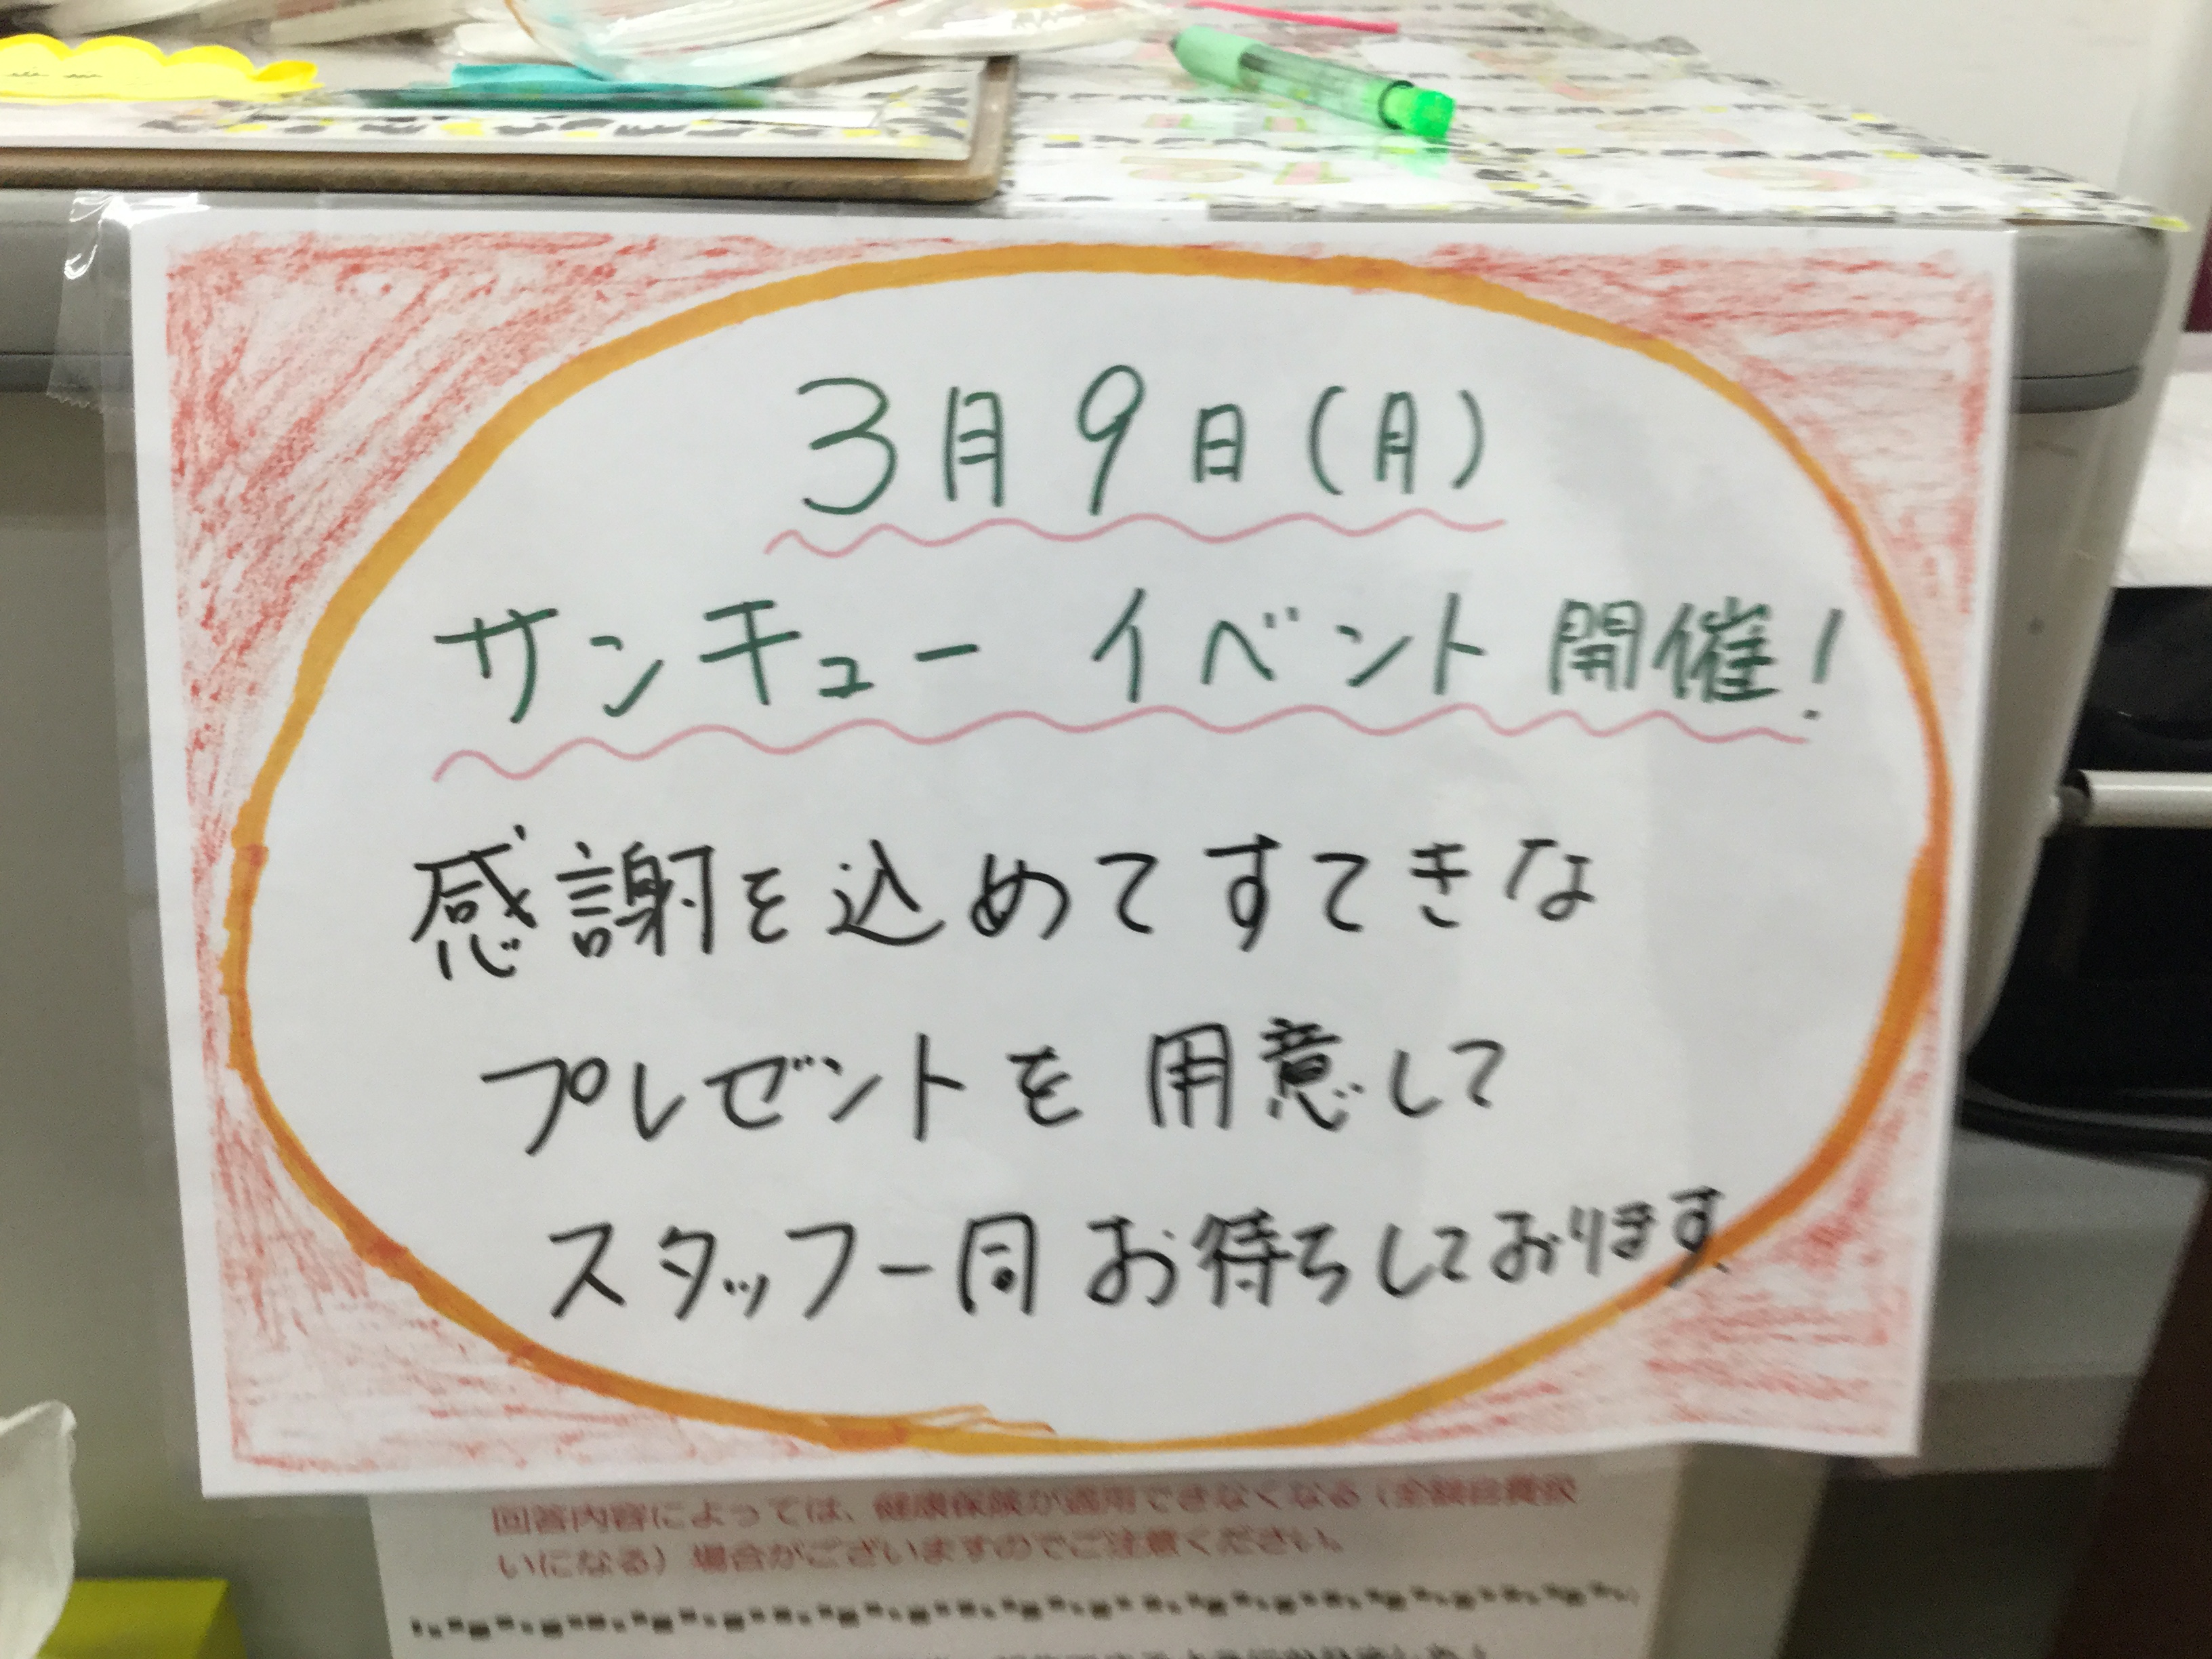 3月9日(月)
サンキュー イベント開催!
感謝を込めてすてきな
プレゼントを用意して
スタッフ一同お待ちしております
回答内容によっては、健康保険が適用できなくなる(全額自費扱
いになる)場合がございますのでご注意ください。